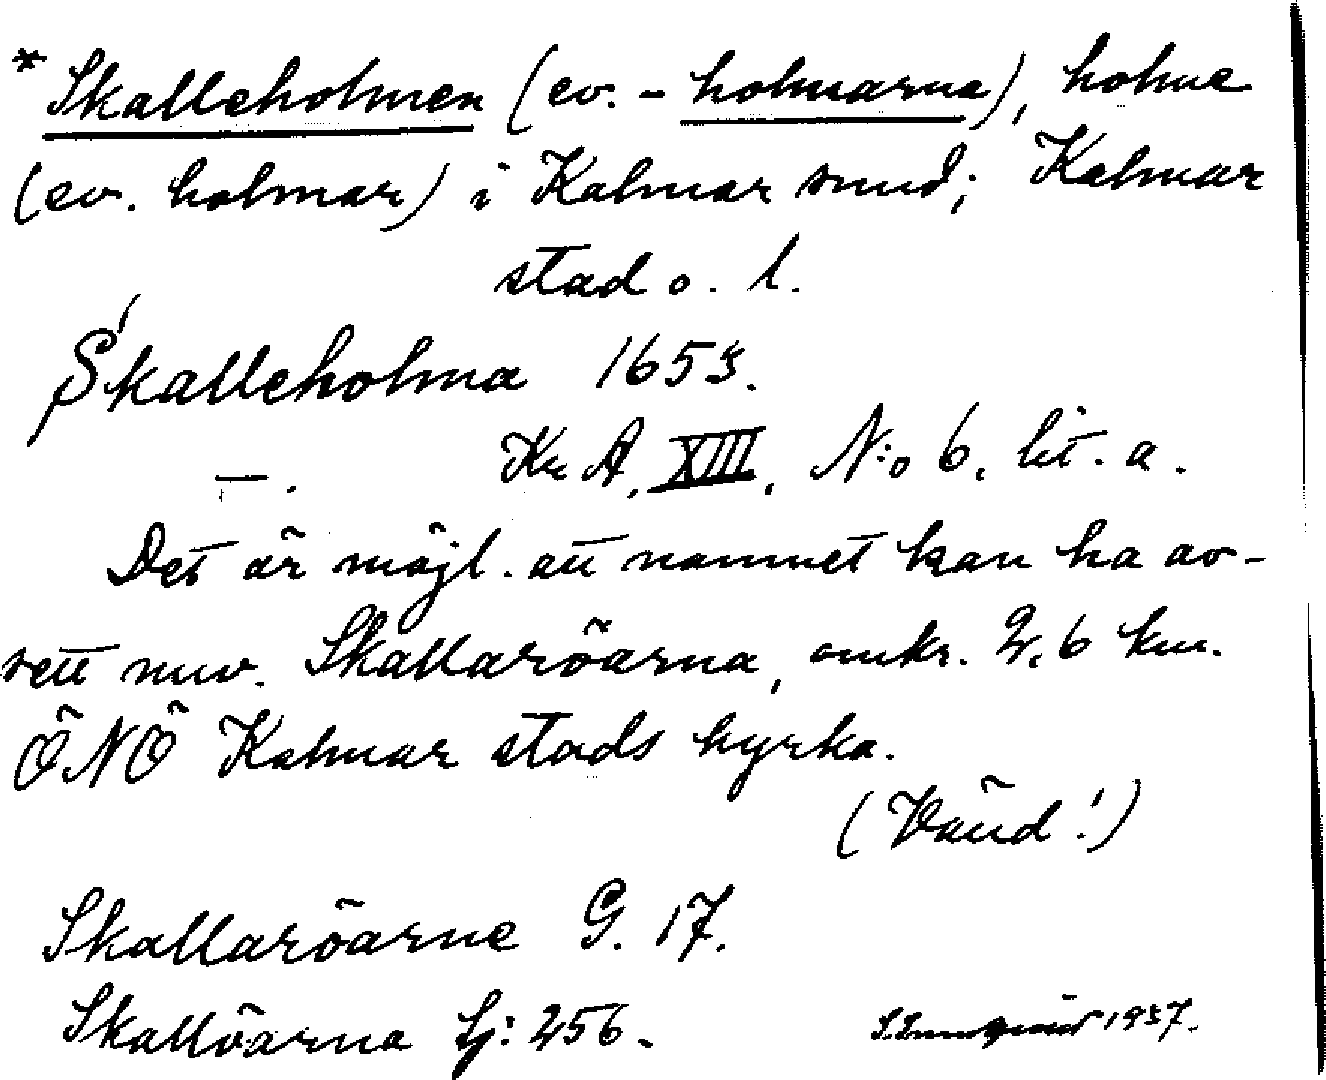 * Skalleholmen (ev. - holmarna), holme
(ev. holmar) i Kalmar sund; Kalmar
stad o. l.
Skalleholma 1653.
Kr A, XIII, N:o 6, lit. a.
— .
Det är möjl. att namnet kan ha av-
sett nuv. Skallaröarna, omkr. 2,6 km.
ÖNÖ Kalmar stads kyrka.
(Vänd!)
Skallaröarne G. 17.
Skallöarna Lj: 256.
1937.